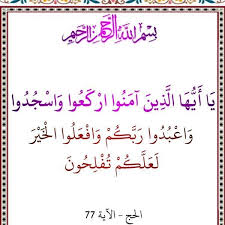 بسم الله الرحمن الرحيم
يَا أَيُّهَا الَّذِينَ آمَنُوا ارْكَعُوا وَاسْجُدُوا
وَاعْبُدُوا رَبَّكُمْ وَافْعَلُوا الْخَيْرَ
لَعَلَّكُمْ تُفْلِحُونَ
الحج - الآية 77